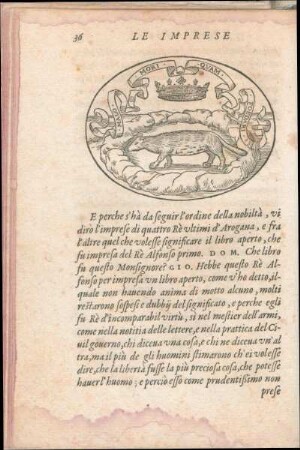 36 LE IMPRESE
MALO MORI QUAM FOEDARI
E perche s'hà da seguir l'ordine della nobiltà, vi
dirò l'imprese di quattro Rè vltimi d'Aragona, e fra
l'altre quel che volesse significare il libro aperto, che
fu impresa del Rè Alfonso primo. DOM. Che libro
fu questo Monsignore? GIO. Hebbe questo Rè Al-
fonso per impresa vn libro aperto, come v'ho detto, il-
quale non hauendo anima di motto alcuno, molti
restarono sospesi e dubbij del significato, e perche egli
fu Rè d'incomparabil virtù, sì nel mestier dell'armi,
come nella notitia delle lettere, e nella prattica del Ci-
uil gouerno, chi diceua vna cosa, e chi ne diceua vn'al
tra, ma il più de gli huomini stimarono ch'ei volesse
dire, che la libertà fusse la più preciosa cosa, che potesse
hauer l'huomo; e perciò esso come prudentissimo non
prese